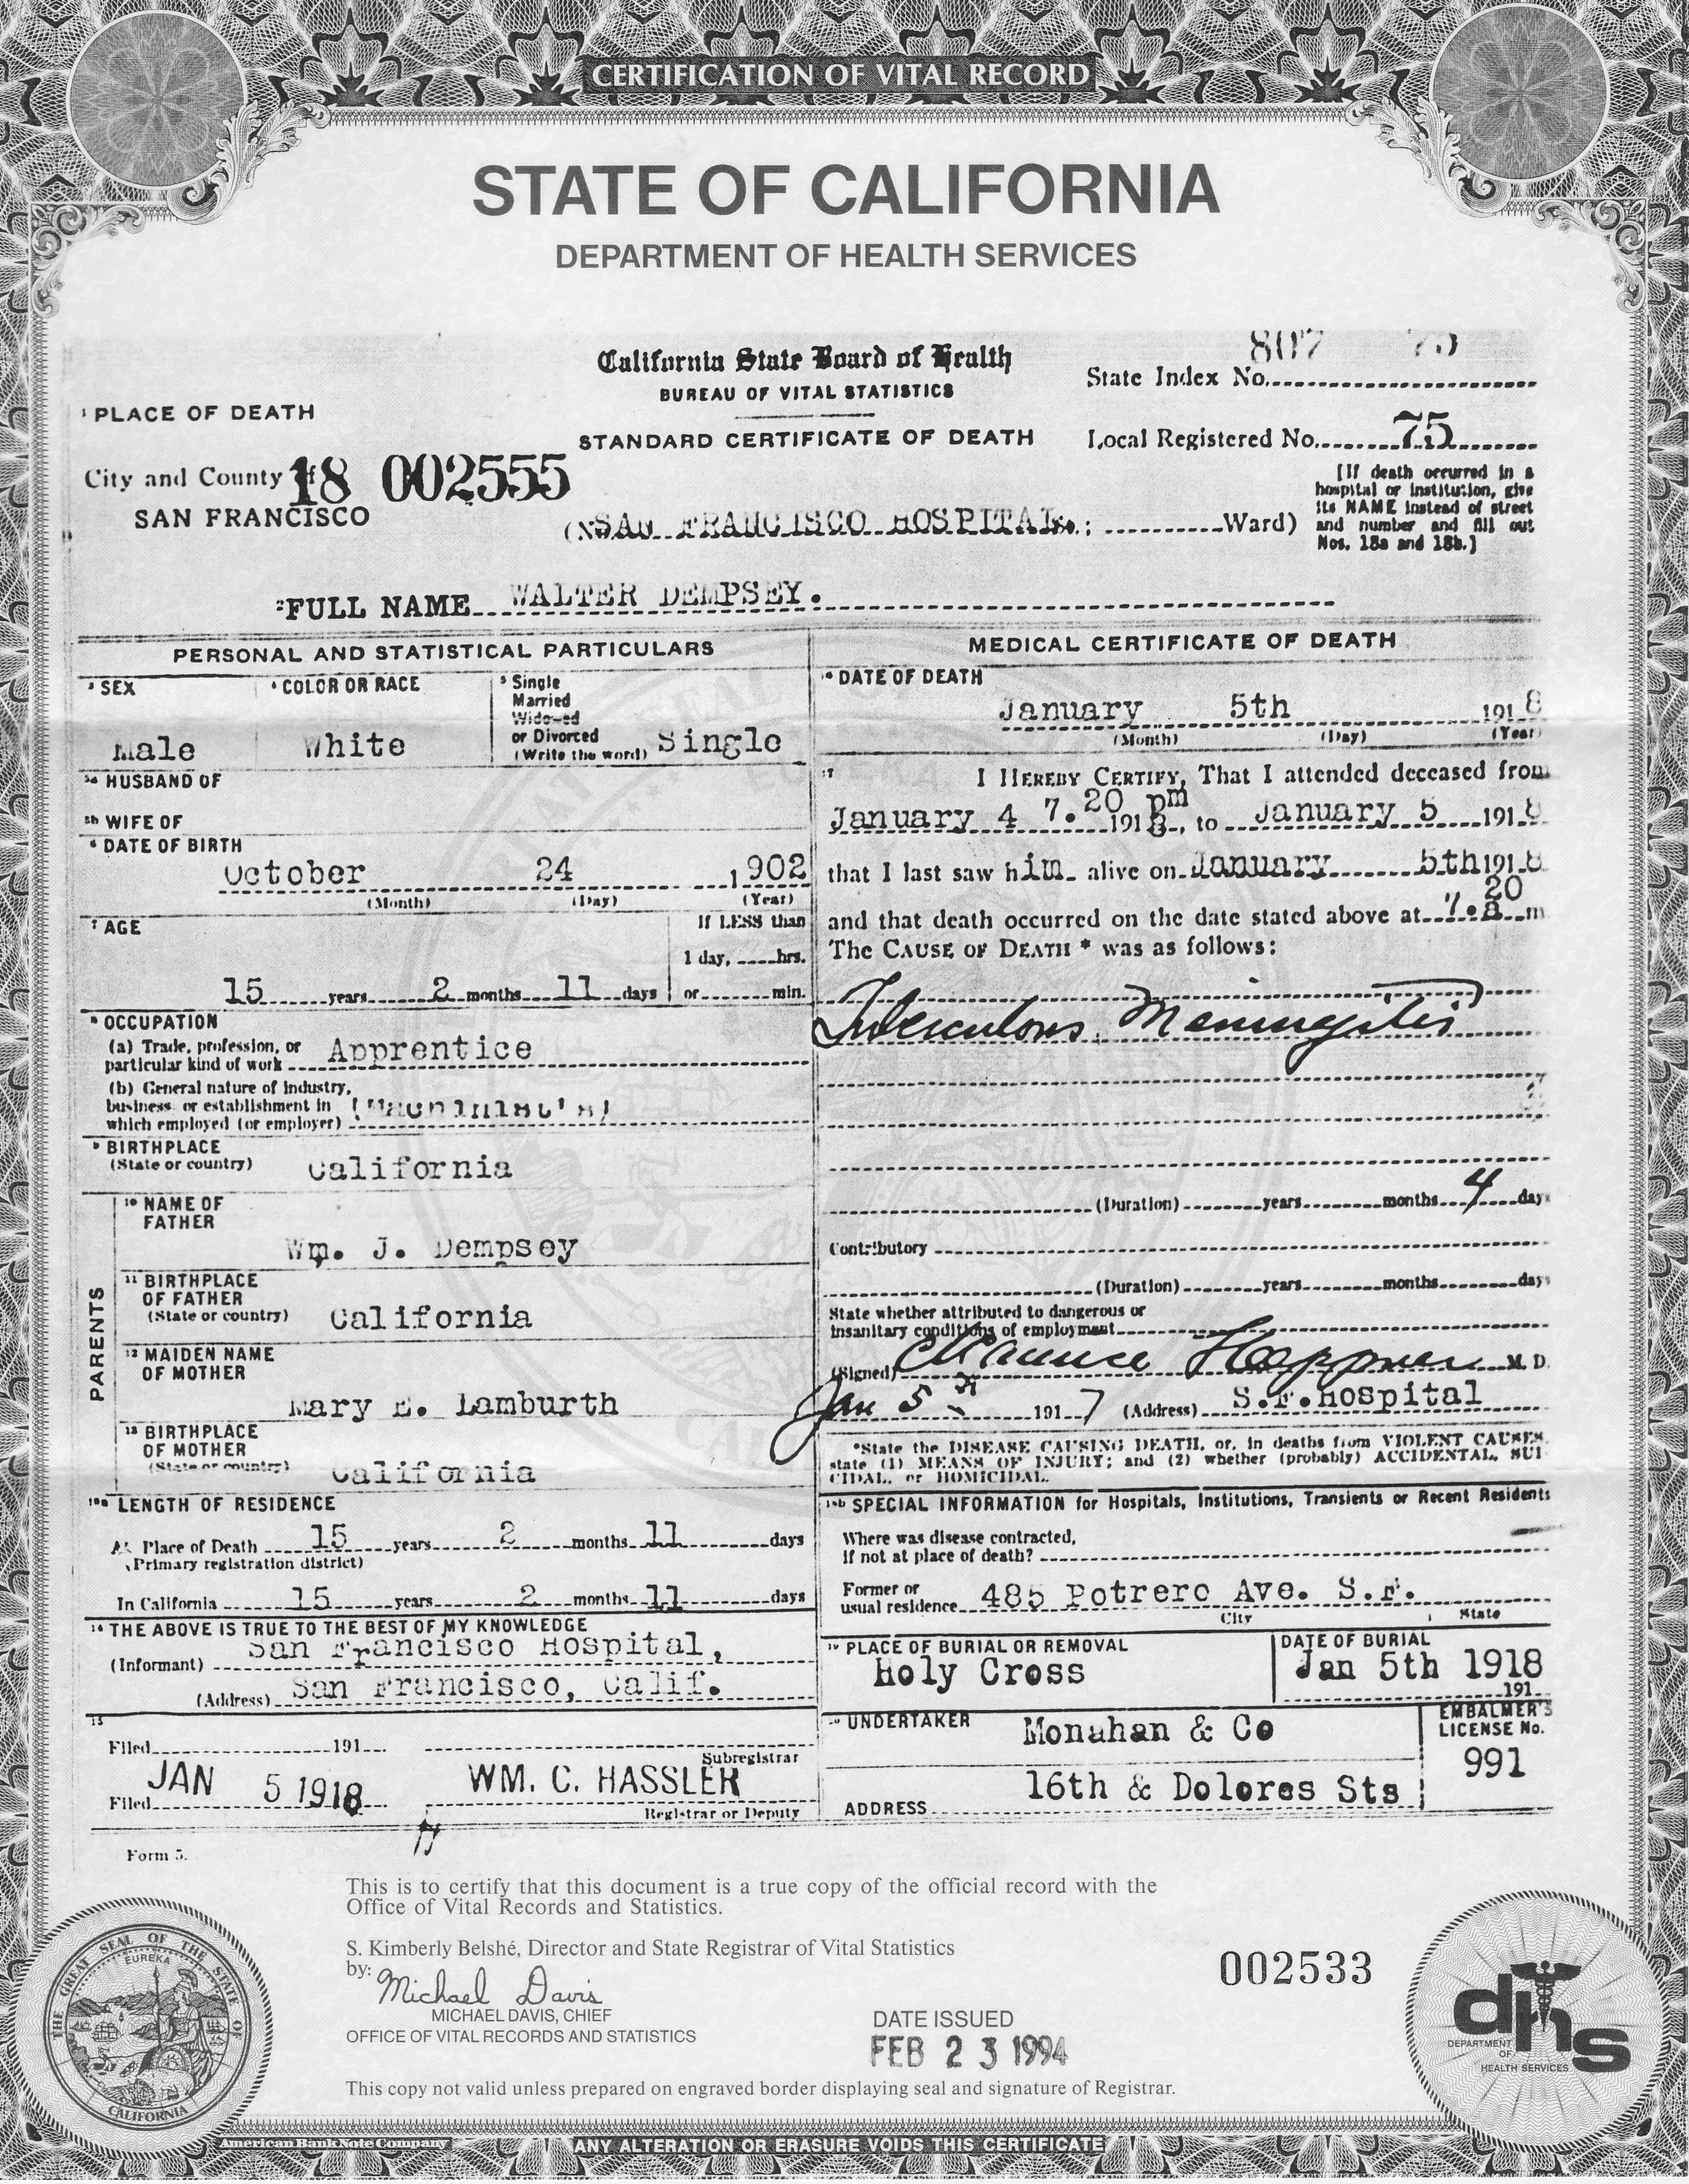 CERTIFICATION OF VITAL RECORD
STATE OF CALIFORNIA
DEPARTMENT OF HEALTH SERVICES
807 75
California State Board of Health
State Index No.
BUREAU OF VITAL STATISTICS
1 PLACE OF DEATH
STANDARD CERTIFICATE OF DEATH
Local Registered No. 75
City and County of
18 002555
SAN FRANCISCO
(No. SAN FRANCISCO HOSPITAL St.; Ward)
[If death occurred in a
hospital or institution, give
its NAME instead of street
and number and fill out
Nos. 18a and 18b.]
2 FULL NAME WALTER DEMPSEY.
PERSONAL AND STATISTICAL PARTICULARS
3 SEX
Male
4 COLOR OR RACE
White
5 Single
Married
Widowed
or Divorced
(Write the word) Single
5a HUSBAND OF
5b WIFE OF
6 DATE OF BIRTH
October 24 1902
(Month) (Day) (Year)
7 AGE
If LESS than
1 day, hrs.
15 years 2 months 11 days or min.
8 OCCUPATION
(a) Trade, profession, or
particular kind of work Apprentice
(b) General nature of industry,
business or establishment in
which employed (or employer) (Machinist's)
9 BIRTHPLACE
(State or country) California
PARENTS
10 NAME OF
FATHER
Wm. J. Dempsey
11 BIRTHPLACE
OF FATHER
(State or country) California
12 MAIDEN NAME
OF MOTHER
Mary E. Lamburth
13 BIRTHPLACE
OF MOTHER
(State or country) California
LENGTH OF RESIDENCE
At Place of Death 15 years 2 months 11 days
(Primary registration district)
In California 15 years 2 months 11 days
14 THE ABOVE IS TRUE TO THE BEST OF MY KNOWLEDGE
(Informant) San Francisco Hospital,
(Address) San Francisco, Calif.
15
Filed 191
Subregistrar
Filed JAN 5 1918 WM. C. HASSLER
Registrar or Deputy
MEDICAL CERTIFICATE OF DEATH
16 DATE OF DEATH
January 5th 1918
(Month) (Day) (Year)
17 I HEREBY CERTIFY, That I attended deceased from
January 4 7.20 pm 1918, to January 5 1918
that I last saw him alive on January 5th 1918
and that death occurred on the date stated above at 7.20 a m
The CAUSE OF DEATH * was as follows:
Tuberculous Meningitis
(Duration) years months 4 days
Contributory
(Duration) years months days
State whether attributed to dangerous or
insanitary conditions of employment
(Signed) M. D.
Jan 5 1917 (Address) S.F. Hospital
*State the DISEASE CAUSING DEATH, or, in deaths from VIOLENT CAUSES,
state (1) MEANS OF INJURY; and (2) whether (probably) ACCIDENTAL, SUI-
CIDAL, or HOMICIDAL.
SPECIAL INFORMATION for Hospitals, Institutions, Transients or Recent Residents
Where was disease contracted,
If not at place of death?
Former or
usual residence 485 Potrero Ave. S.F.
City State
19 PLACE OF BURIAL OR REMOVAL
Holy Cross
DATE OF BURIAL
Jan 5th 1918
191
20 UNDERTAKER Monahan & Co
ADDRESS 16th & Dolores Sts
EMBALMER'S
LICENSE No.
991
Form 5.
This is to certify that this document is a true copy of the official record with the
Office of Vital Records and Statistics.
S. Kimberly Belshé, Director and State Registrar of Vital Statistics
by: Michael Davis
MICHAEL DAVIS, CHIEF
OFFICE OF VITAL RECORDS AND STATISTICS
002533
DATE ISSUED
FEB 23 1994
This copy not valid unless prepared on engraved border displaying seal and signature of Registrar.
THE GREAT SEAL OF THE STATE OF CALIFORNIA
EUREKA
dhs
DEPARTMENT
OF
HEALTH SERVICES
American Bank Note Company
ANY ALTERATION OR ERASURE VOIDS THIS CERTIFICATE